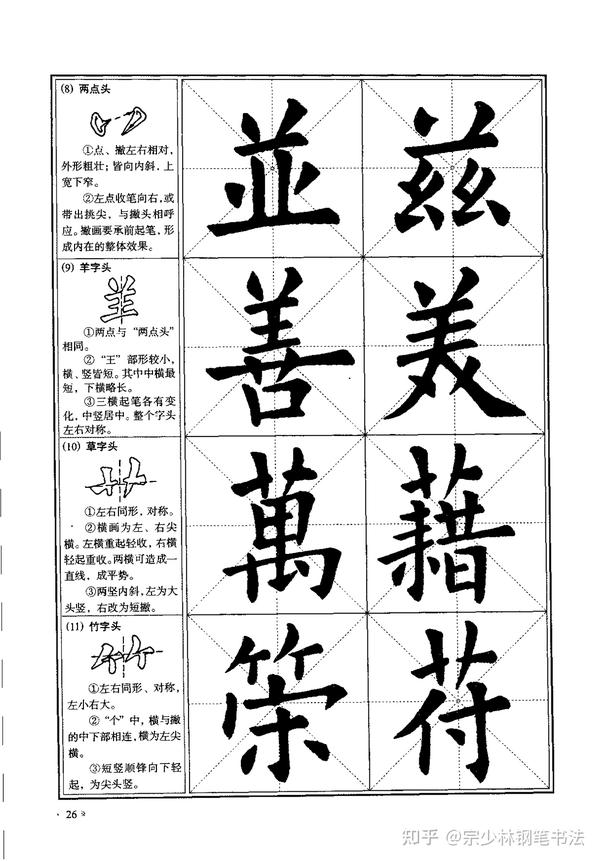 (8) 两点头
①点、撇左右相对,
外形粗壮;皆向内斜,上
宽下窄。
②左点收笔向右,或
带出挑尖,与撇头相呼
应。撇画要承前起笔,形
成内在的整体效果。
並 兹
(9) 羊字头
①两点与“两点头”
相同。
②“王”部形较小,
横、竖皆短。其中中横最
短,下横略长。
③三横起笔各有变
化,中竖居中。整个字头
左右对称。
善 美
(10) 草字头
①左右同形,对称。
②横画为左、右尖
横。左横重起轻收,右横
轻起重收。两横可造成一
直线,成平势。
③两坚内斜,左为大
头竖,右改为短撇。
萬 藉
(11) 竹字头
①左右同形、对称,
左小右大。
②“个”中,横与撇
的中下部相连,横为左尖
横。
③短竖顺锋向下轻
起,为尖头竖。
苻
26
知乎 @宗少林钢笔书法